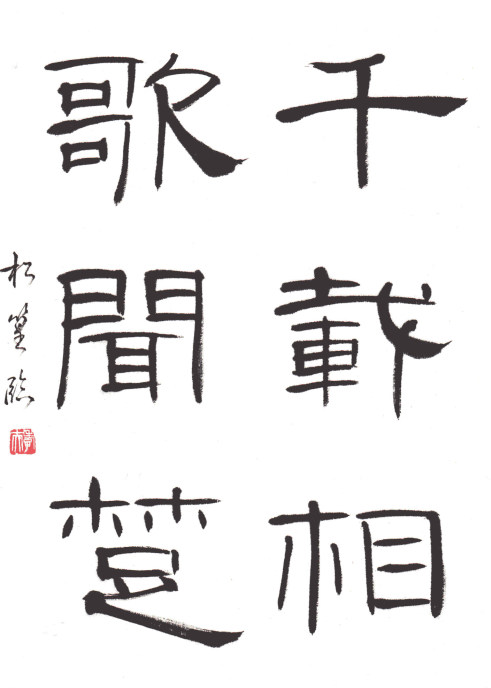 千載相
歌聞楚
松篁臨